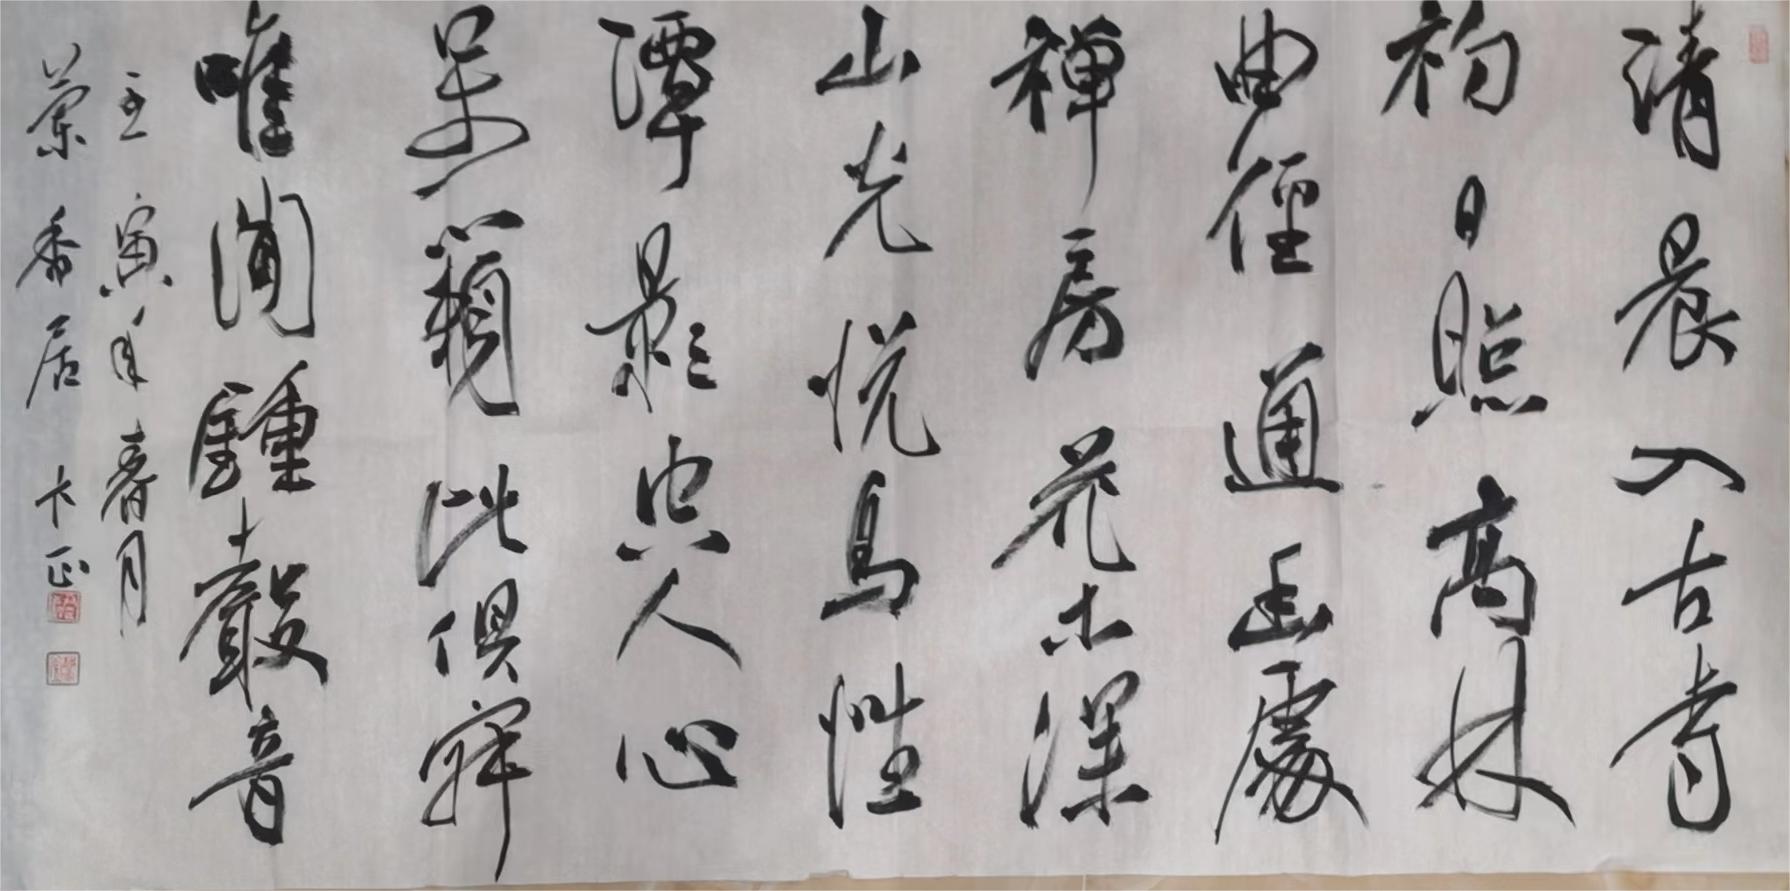 清晨入古寺
初日照高林
曲徑通幽處
禪房花木深
山光悦鳥性
潭影空人心
萬籟此俱寂
唯聞鍾聲音
壬寅年春月
蘭香居 卞正